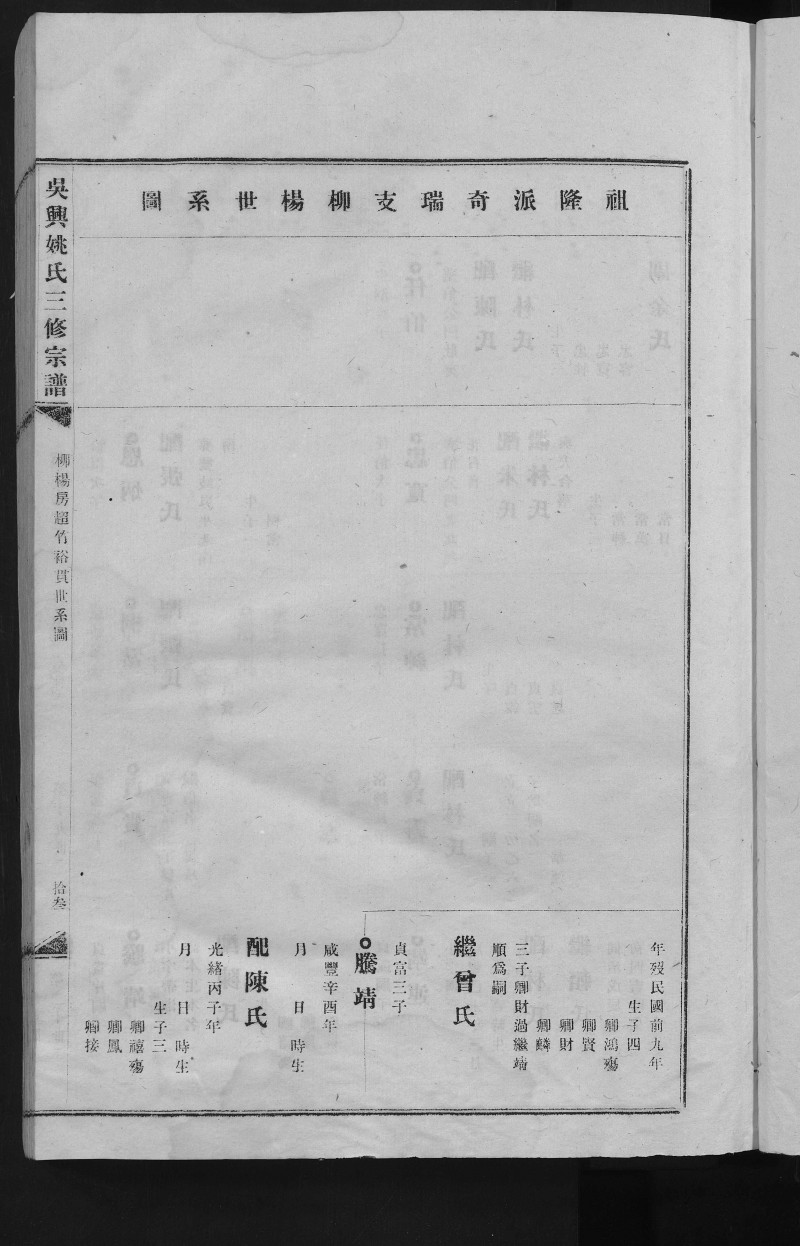 祖隆派奇瑞支柳楊世系圖
年歿民國前九年
生子四
卿鴻殤
卿賢
卿財
卿麟
三子卿財過繼靖
順爲嗣
繼曾氏
貞富三子
騰靖
咸豐辛酉年
月 日 時生
配陳氏
光緒丙子年
月 日 時生
生子三
卿禧殤
卿鳳
卿接
吳興姚氏三修宗譜
柳楊房超竹裕貫世系圖
拾叁